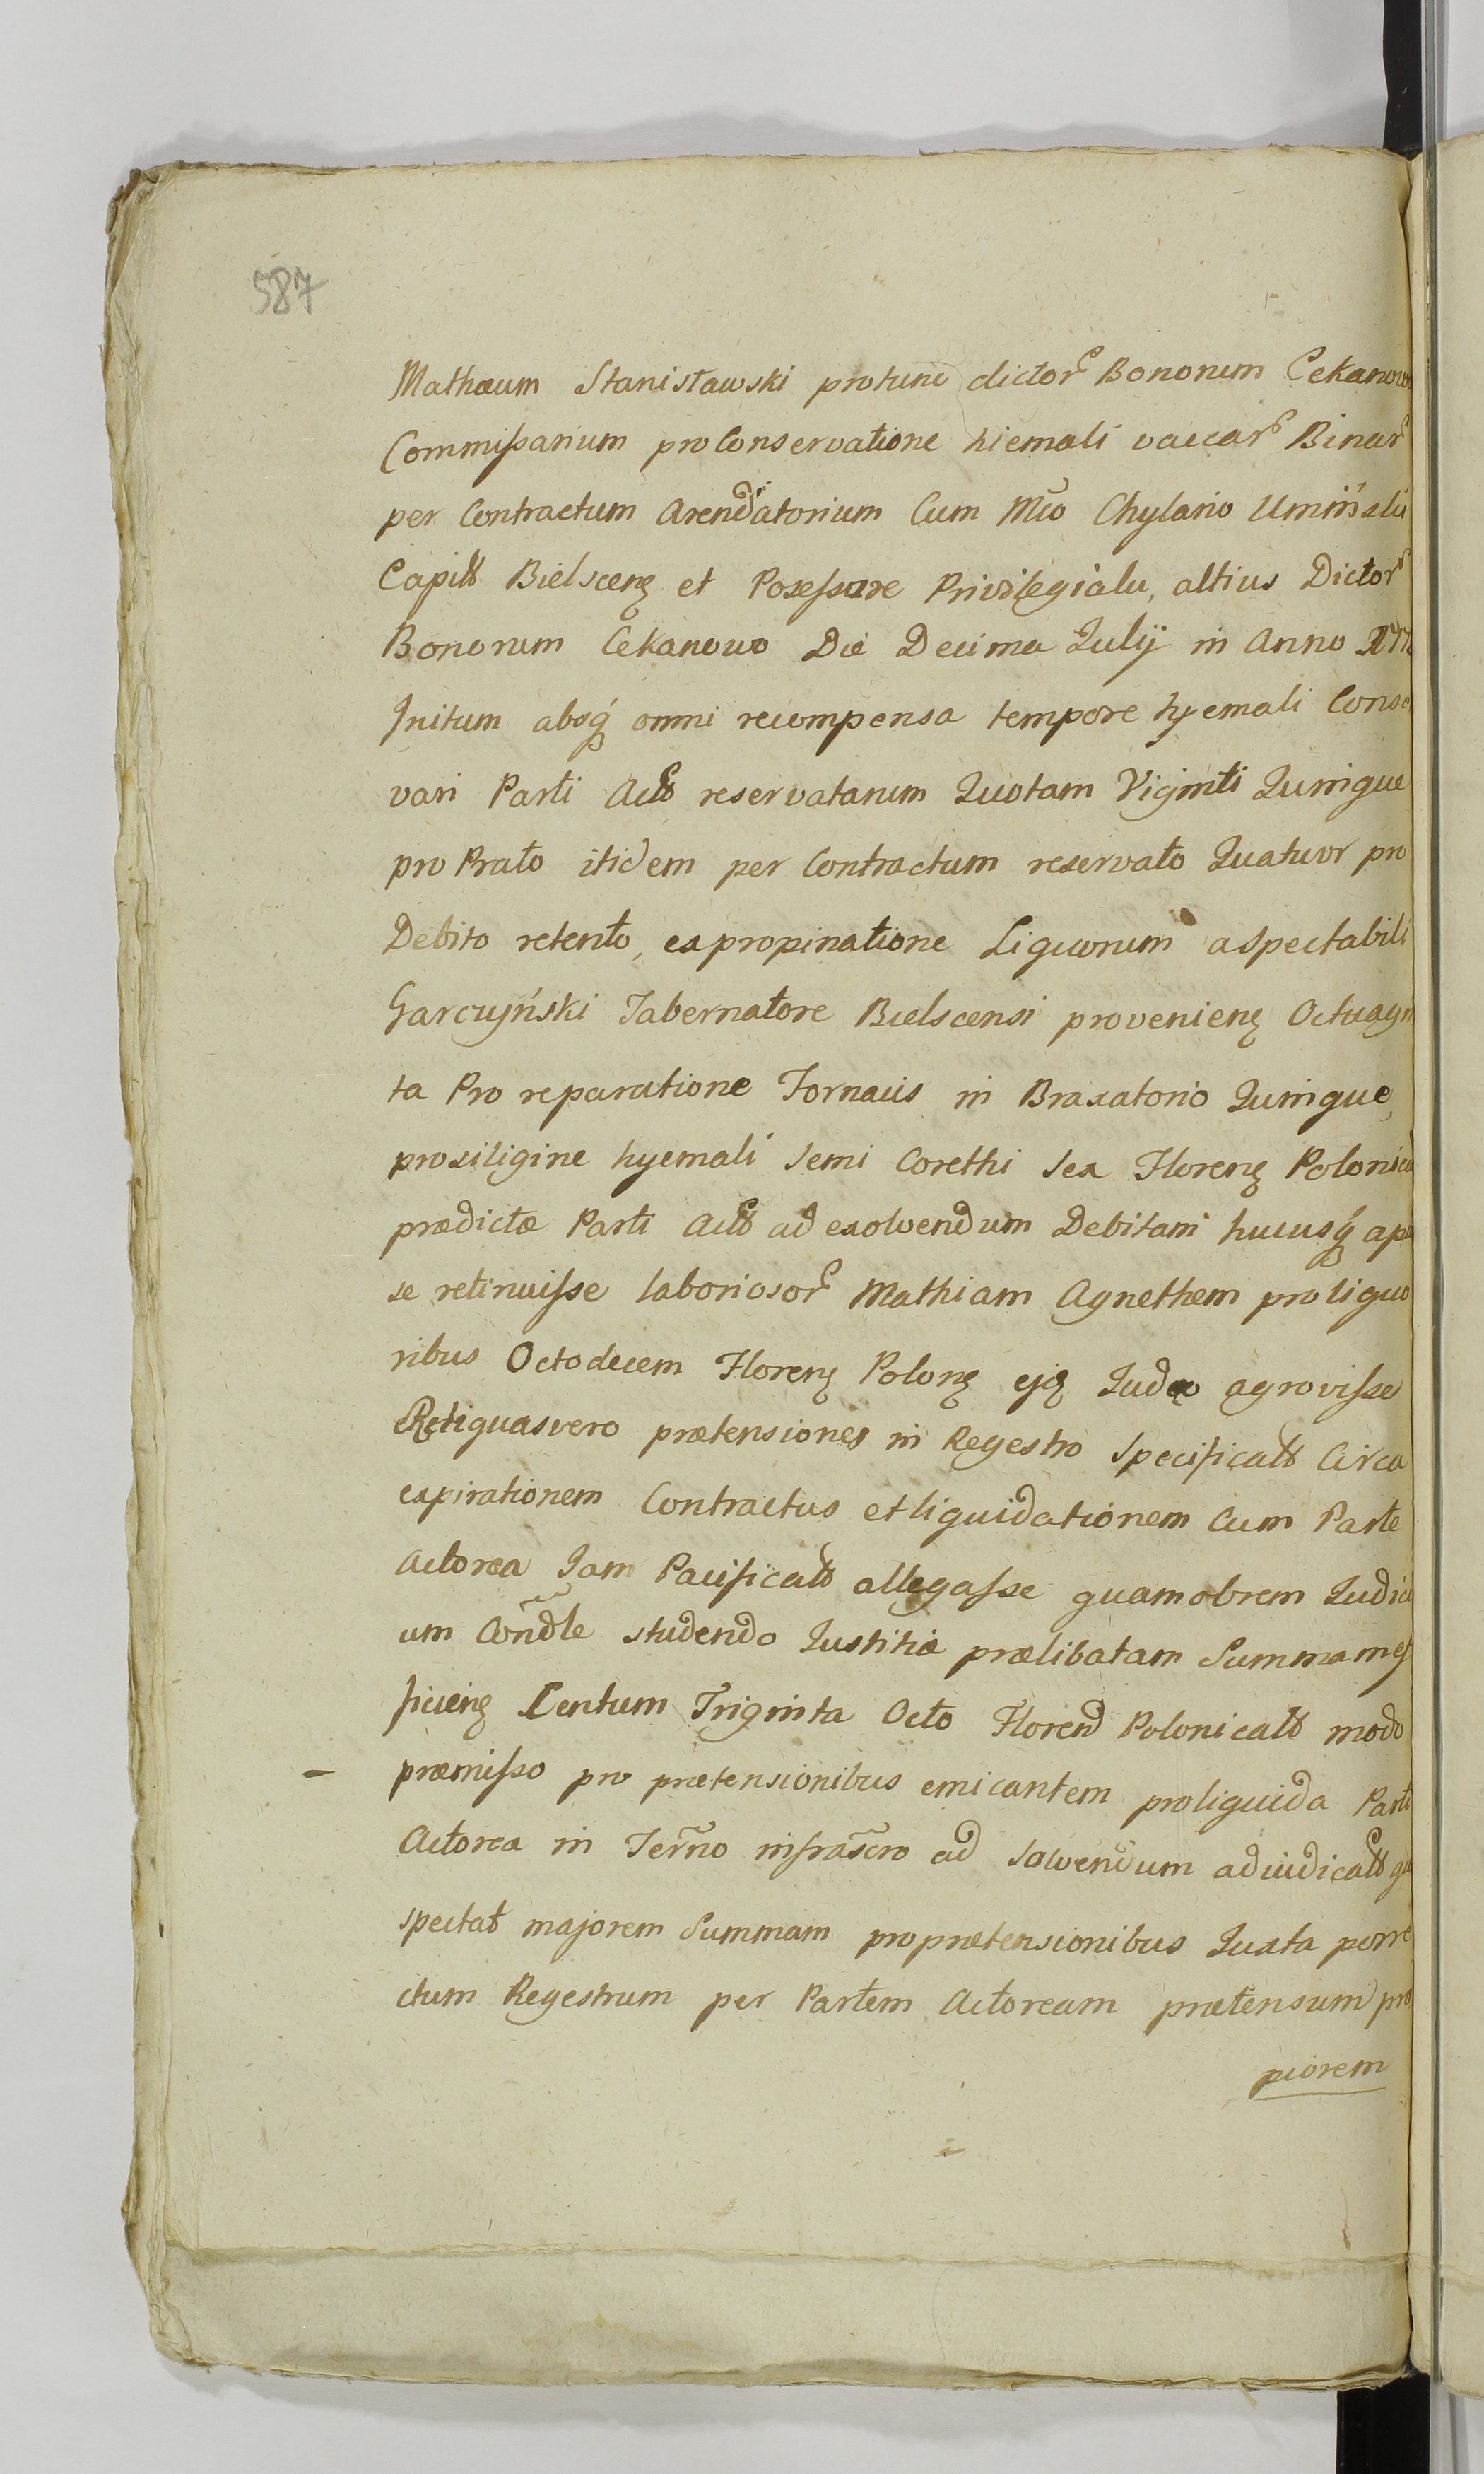 587
Mathæum Stanisławski protunc dictor Bonorum Cekanow
Commißarium pro Conservatione hiemali vaccar Binar
per Contractum Arendatorium Cum Mco Chylario Umiński
Capitt Bielscenę et Poseßore Privilegiału, altius Dictor
Bonorum Cekanowo Die Decima Julij in Anno
Initum absq́ omni recompensa tempore hyemali Conse
vari Parti Actt reservatarum Quotam Viginti Quinque
pro Prato itidem per Contractum reservato Quatuor pro
Debito retento, expropinatione Liquorum a spectabili
Garczyński Tabernatore Bielscensi provenienę Octuagin
ta Pro reparatione Fornacis in Braxatorio Quinque
pro siligine hyemali Semi Corethi Sex Florenę Polonica
prædictæ Parti Actt ad exolvendum Debitam hucusq́ apu
se retinuiße laboriosor Mathiam Agnethem pro liquo
ribus Octodecem Florenę Polonę eję Judæo agnovißse
Reliquas vero prætensiones in Regestro Specificatt Circa
expirationem Contractus et liquidationem Cum Parte
Actorea Jam Pacificatt allegaße quamobrem Judici
um Cõndle studendo Justitiæ prælibatam Summam ef
ficienę Centum Triginta Octo Florend Polonicatt modo
præmißo pro prætensionibus emicantem pro liquida Parti
Actorea in Termno infrascro ad Solvendum adiudicatt qu
spectat majorem Summam pro prætensionibus Juxta porre
ctum Regestrum per Partem Actoream prætensum pro
piorem